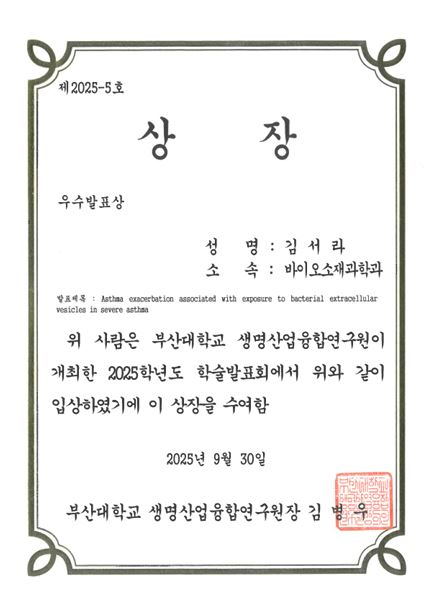 제2025-5호
상 장
우수발표상
성 명 : 김서라
소 속 : 바이오소재과학과
발표제목 : Asthma exacerbation associated with exposure to bacterial extracellular
vesicles in severe asthma
위 사람은 부산대학교 생명산업융합연구원이
개최한 2025학년도 학술발표회에서 위와 같이
입상하였기에 이 상장을 수여함
2025년 9월 30일
부산대학교 생명산업융합연구원장 김 병 우